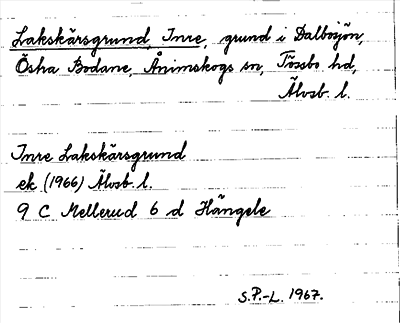 Lakskärsgrund, Inre, grund i Dalbosjön,
Östra Bodane, Ånimskogs sn, Tössbo hd,
Älvsb. l.
Inre Lakskärsgrund
ek (1966) Älvsb. l.
9 C Mellerud 6 d Hängele
S.P.-L. 1967.